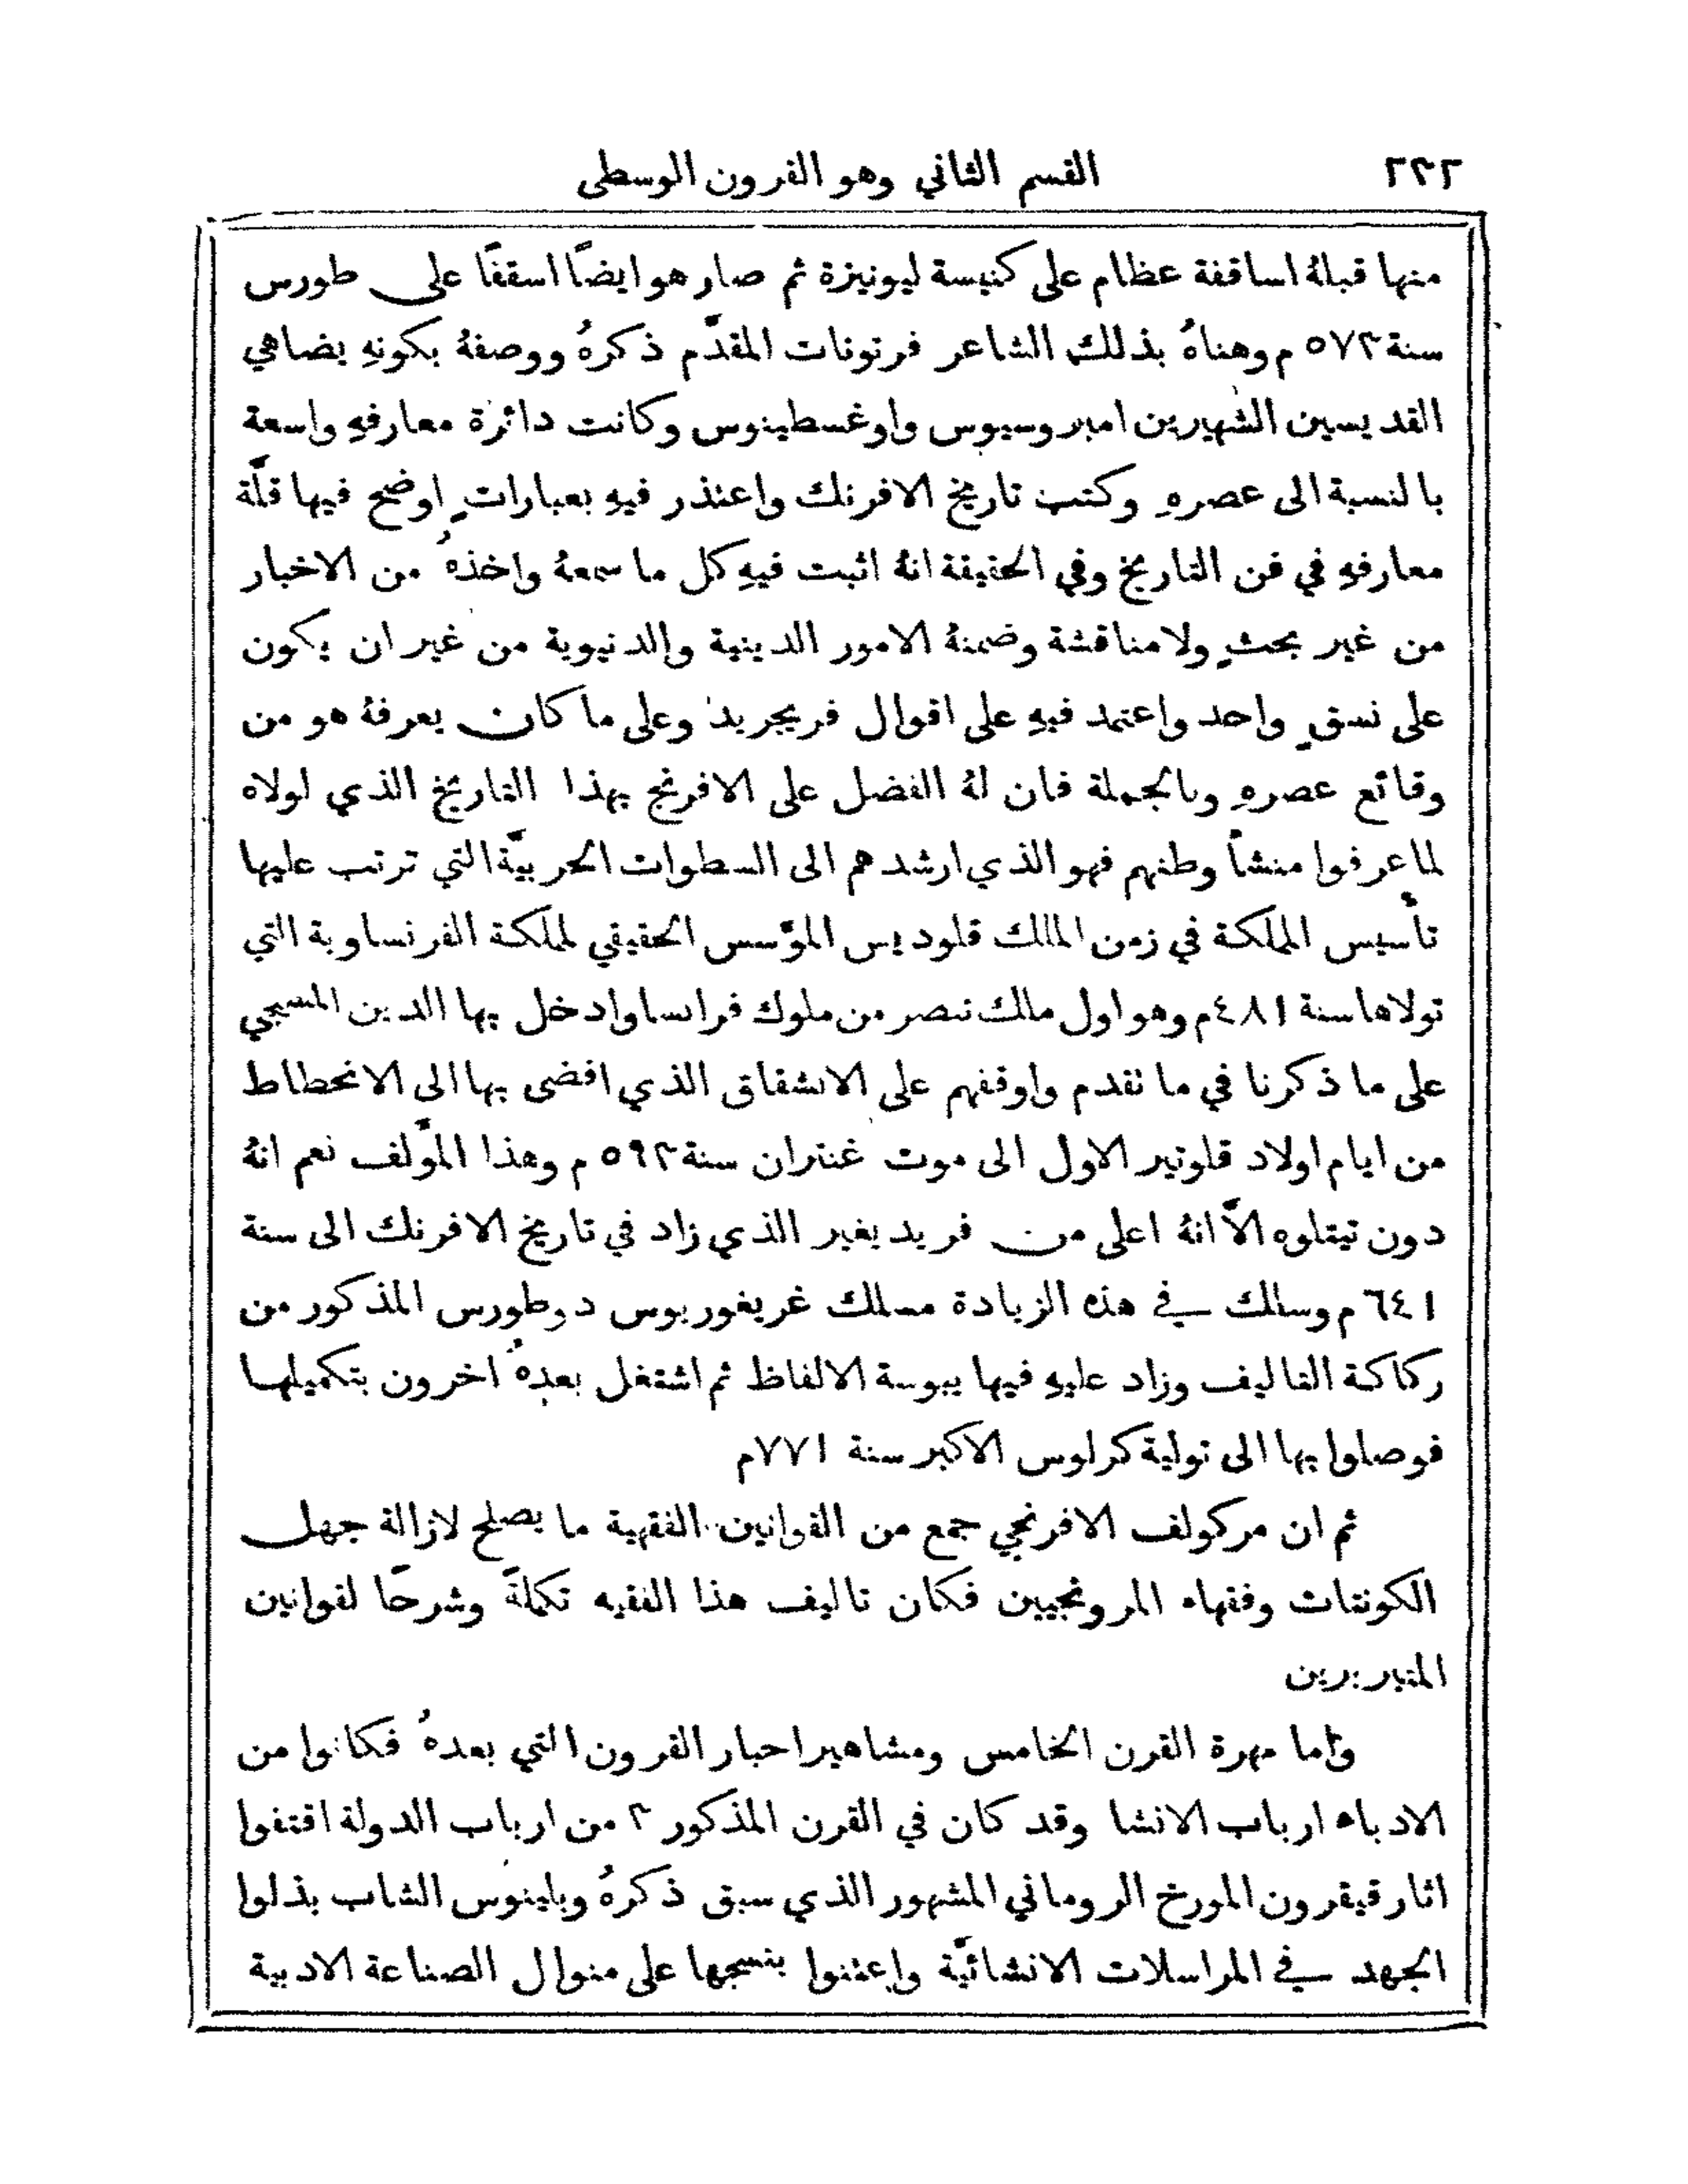 ٢٣٢ القسم الثاني وهو القرون الوسطى
منها قبلهُ اساقفة عظام على كنيسة ليونيزة ثم صار هو ايضًا اسقفًا على طورس
سنة ٥٧٣ م وهناهُ بذلك الشاعر فرتونات المقدَّم ذكرهُ ووصفهُ بكونهِ يضاهي
القديسين الشهيرين امبروسيوس واوغسطينوس وكانت دائرة معارفهِ واسعة
بالنسبة الى عصرهِ وكتب تاريخ الافرنك واعتذر فيهِ بعباراتٍ اوضح فيها قلَّة
معارفهِ في فن التاريخ وفي الحقيقة انهُ اثبت فيهِ كل ما سمعهُ واخذهُ من الاخبار
من غير بحثٍ ولا مناقشة وضمنهُ الامور الدينية والدنيوية من غير ان يكون
على نسقٍ واحد واعتمد فيهِ على اقوال فريجريد وعلى ما كان يعرفهُ هو من
وقائع عصرهِ وبالجملة فان لهُ الفضل على الافرنج بهذا التاريخ الذي لولاه
لما عرفوا منشأ وطنهم فهو الذي ارشدهم الى السطوات الحربيَّة التي ترتب عليها
تأسيس المملكة في زمن الملك قلوديس المؤَسس الحقيقي لمملكة الفرنساوية التي
تولاها سنة ٤٨١م وهو اول ملك تنصر من ملوك فرانسا وادخل بها الدين المسيحي
على ما ذكرنا في ما تقدم واوقفهم على الانشقاق الذي افضى بها الى الانحطاط
من ايام اولاد قلوتير الاول الى موت غنتران سنة ٥٩٣ م وهذا المؤَلف نعم انهُ
دون تيتلوه الَّا انهُ اعلى من فريديغير الذي زاد في تاريخ الافرنك الى سنة
٦٤١ م وسلك في هذه الزيادة مسلك غريغوريوس دوطورس المذكور من
ركاكة التاليف وزاد عليهِ فيها يبوسة الالفاظ ثم اشتغل بعدهُ اخرون بتكميلها
فوصلوا بها الى تولية كرلوس الاكبر سنة ٧٧١م
ثم ان مركولف الافرنجي جمع من القوانين الفقهية ما يصلح لازالة جهل
الكونتات وفقهاء المرونجيين فكان تاليف هذا الفقيه تكملةً وشرحًا لقوانين
المتبربرين
واما مهرة القرن الخامس ومشاهير احبار القرون التي بعدهُ فكانوا من
الادباء ارباب الانشا وقد كان في القرن المذكور ٣ من ارباب الدولة اقتفوا
اثار قيقرون المورخ الروماني المشهور الذي سبق ذكرهُ وبلينوس الشاب بذلوا
الجهد في المراسلات الانشائيَّة واعتنوا بنسجها على منوال الصناعة الادبية